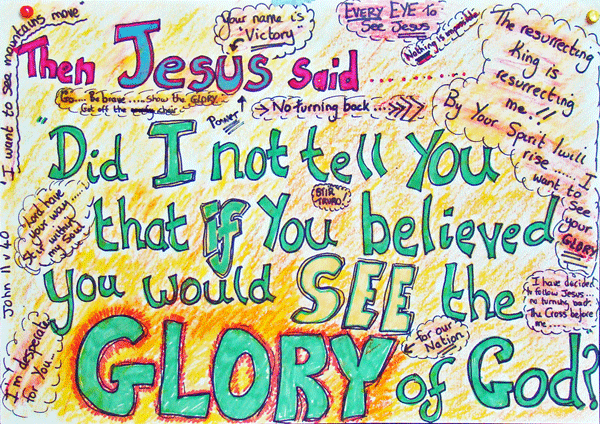 Then Jesus said ............
"Did I not tell you
that if You believed
you would SEE the
GLORY of God?
"I want to see mountains move"
Your name is
"Victory"
EVERY EYE To
See Jesus
Nothing is impossible
The resurrecting
King is
resurrecting
me..!!
By Your Spirit I will
rise..... I
want to
see
your
GLORY
Go.... Be brave.... show the GLORY.
Get off the chair
Power
No turning back....
STIR
Lord have
your way.....
in within
my Soul
John 11 v 40
I'm desperate
for You..
for our
Nation
I have decided
to follow Jesus...
no turning back.
The Cross before
me......